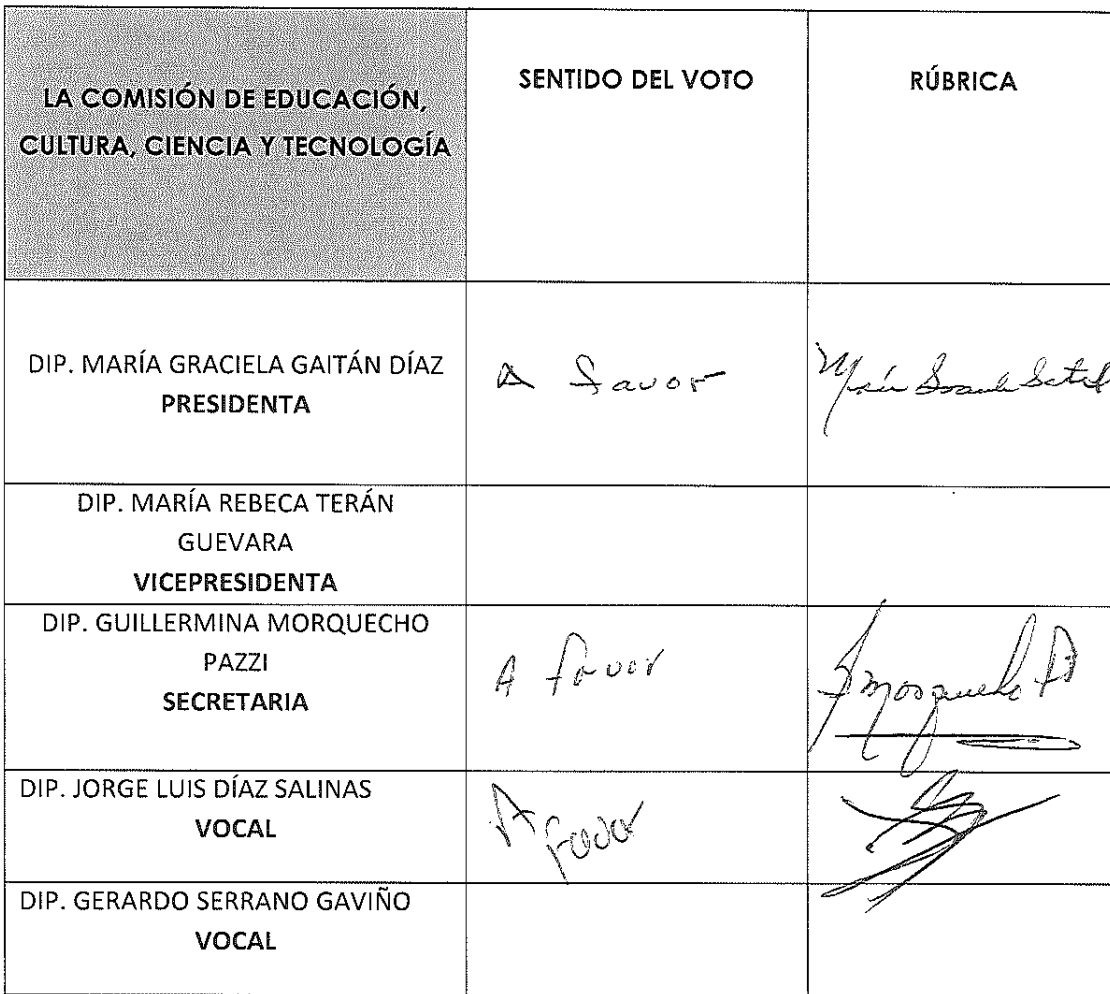 LA COMISIÓN DE EDUCACIÓN,
CULTURA, CIENCIA Y TECNOLOGÍA
SENTIDO DEL VOTO
RÚBRICA
DIP. MARÍA GRACIELA GAITÁN DÍAZ
PRESIDENTA
A favor
DIP. MARÍA REBECA TERÁN
GUEVARA
VICEPRESIDENTA
DIP. GUILLERMINA MORQUECHO
PAZZI
SECRETARIA
A favor
Gmorquecho P
DIP. JORGE LUIS DÍAZ SALINAS
VOCAL
A
favor
DIP. GERARDO SERRANO GAVIÑO
VOCAL